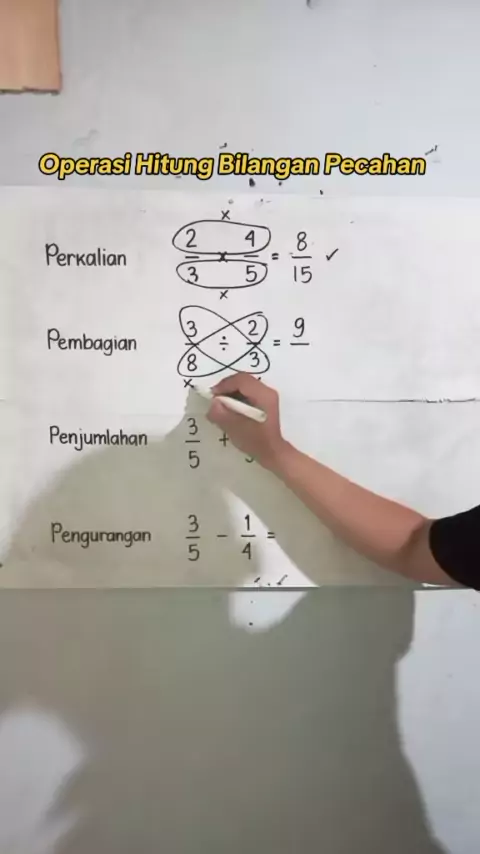 Operasi Hitung Bilangan Pecahan
Perkalian 2/3 x 4/5 = 8/15 ✓
x
x
Pembagian 3/8 ÷ 2/3 = 9
x
Penjumlahan 3/5 +
Pengurangan 3/5 - 1/4 =